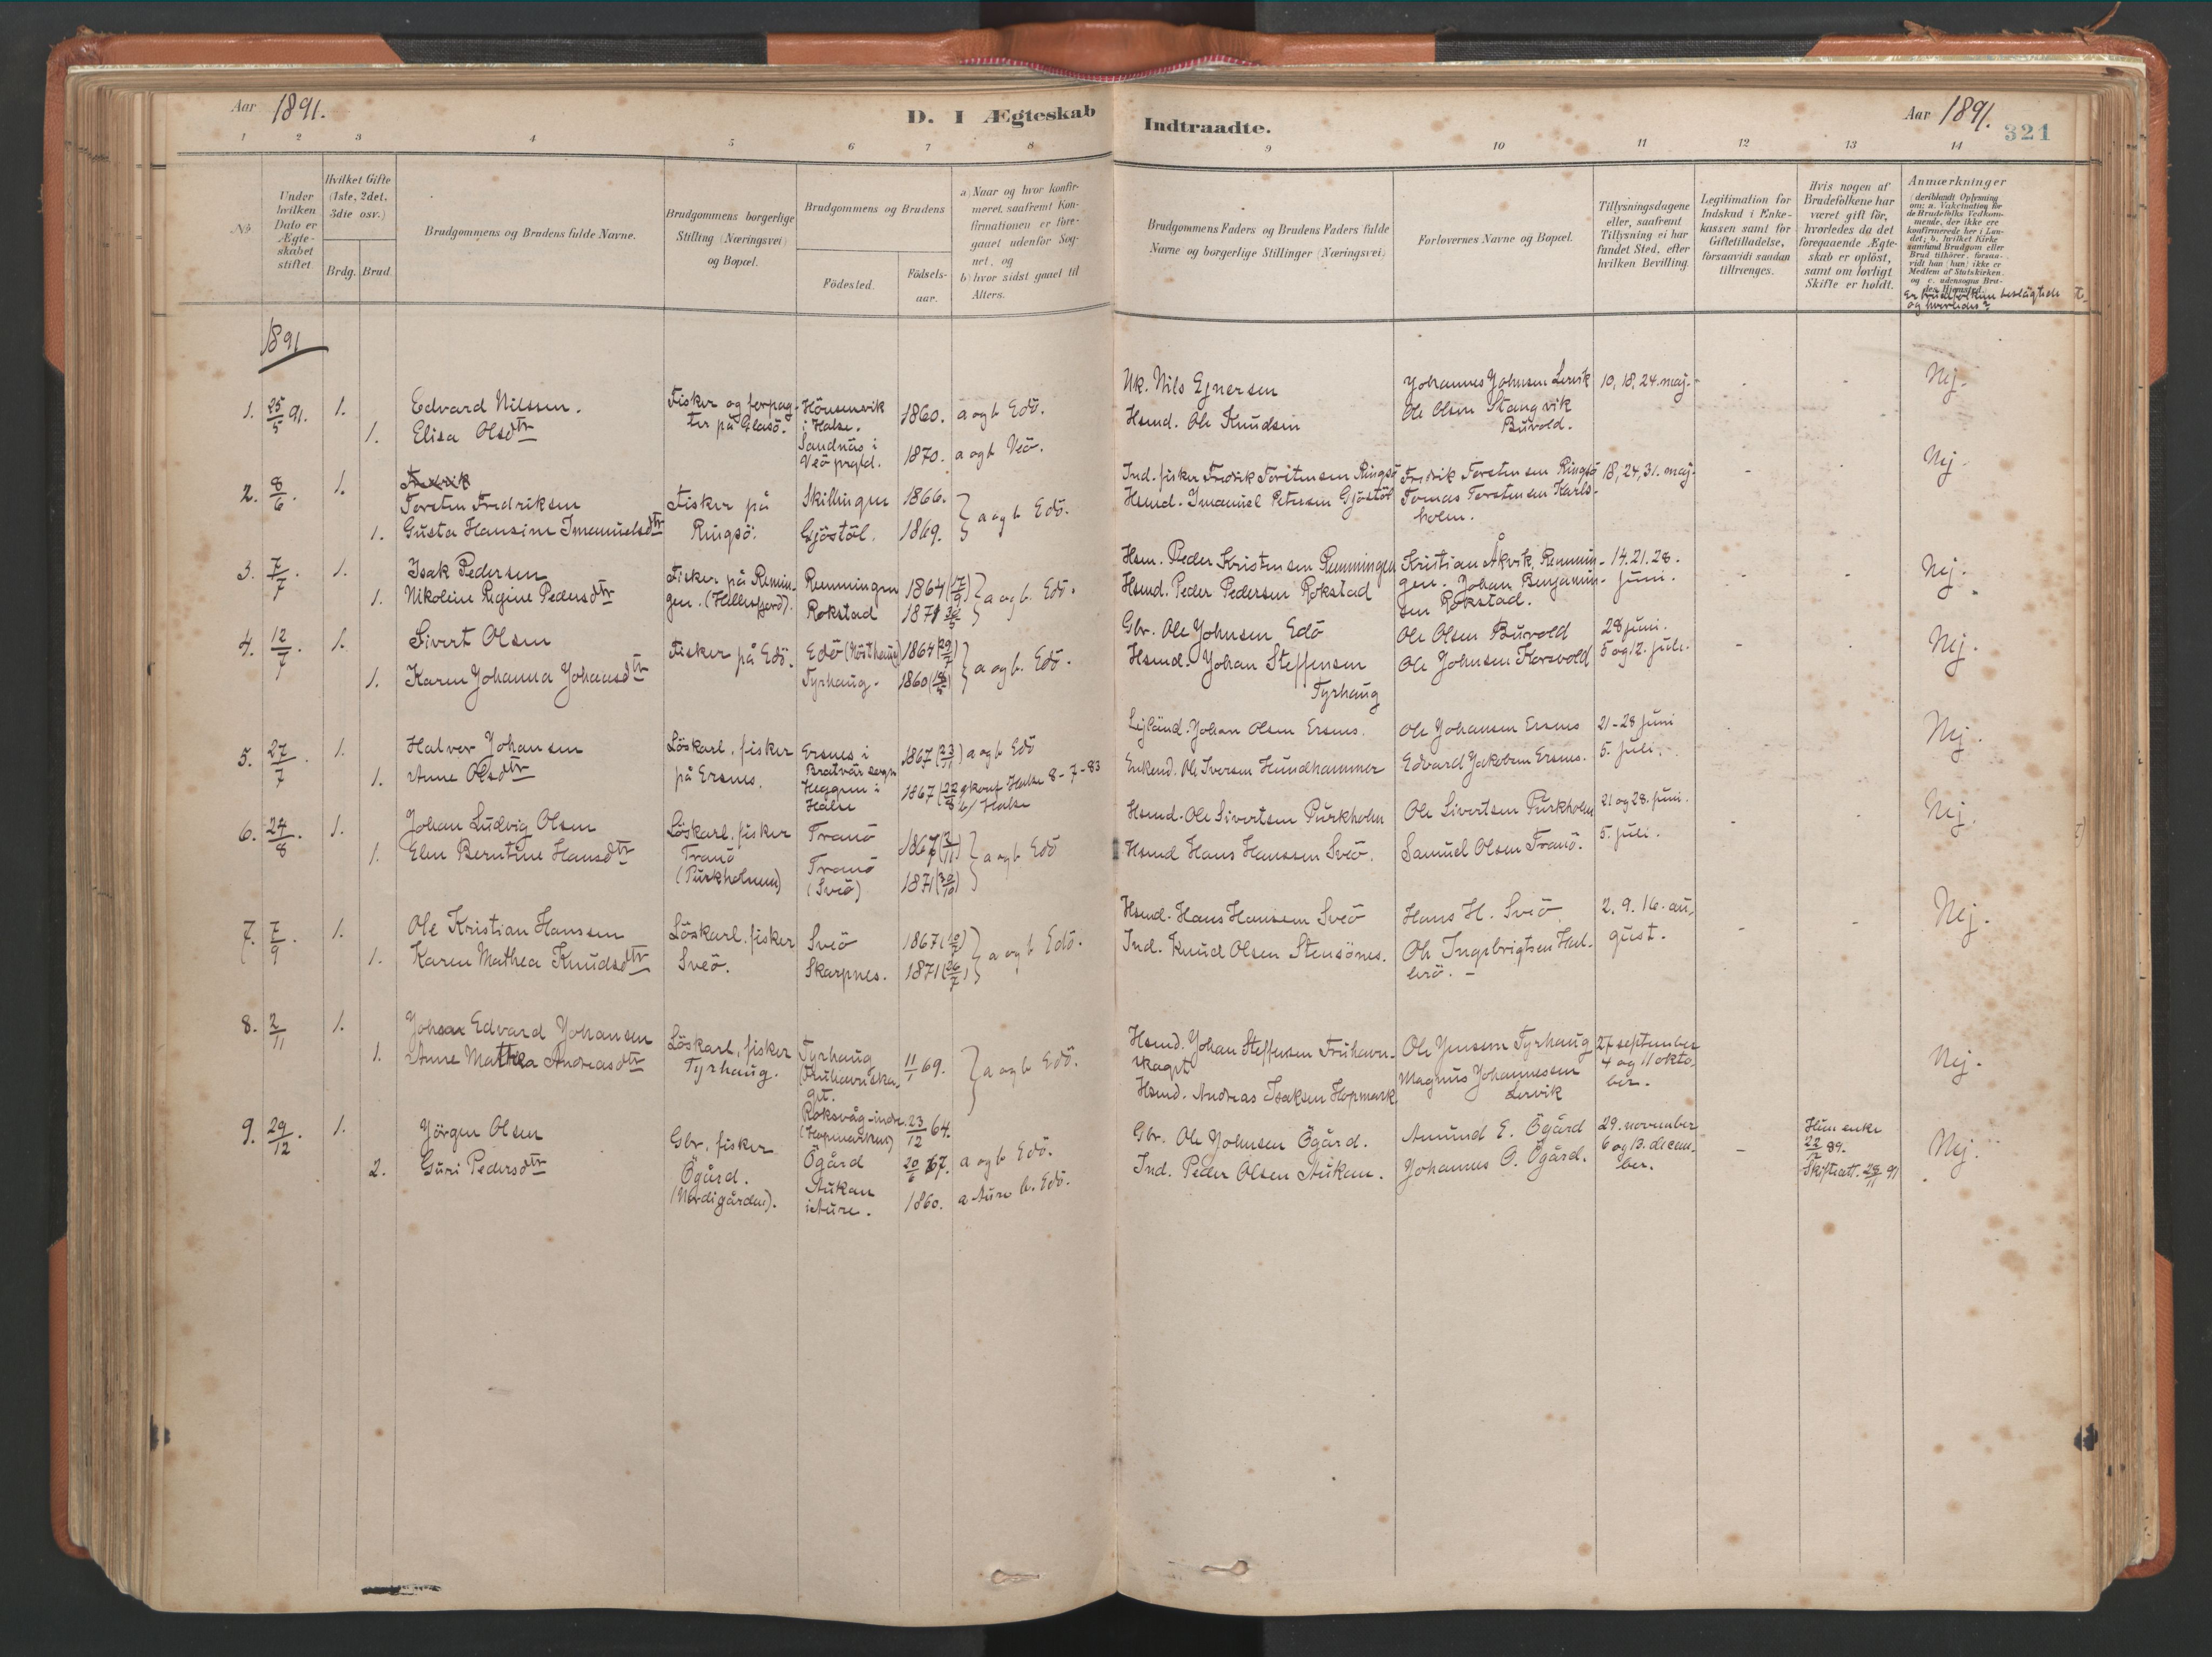 Aar 1891.
D. I Ægteskab
Indtraadte.
Aar 1891.
321
1 2 3 4 5 6 7 8
9 10 11 12 13 14
№
Under hvilken Dato er Ægteskabet stiftet.
Hvilket Gifte (1ste, 2det, 3die osv.)
Brdg. Brud.
Brudgommens og Brudens fulde Navne.
Brudgommens borgerlige Stilling (Næringsvei) og Bopæl.
Brudgommens og Brudens
Födested.
Födselsaar.
a) Naar og hvor konfirmeret, saafremt Konfirmationen er foregaaet udenfor Sognet, og
b) hvor sidst gaaet til Alters.
Brudgommens Faders og Brudens Faders fulde Navne og borgerlige Stillinger (Næringsvei)
Forlovernes Navne og Bopæl.
Tillysningsdagene eller, saafremt Tillysning ei har fundet Sted, efter hvilken Bevilling.
Legitimation for Indskud i Enkekassen samt for Giftetilladelse, forsaavidt saadan tiltrænges.
Hvis nogen af Brudefolkene har været gift för, hvorledes da det foregaaende Ægteskab er oplöst, samt om lovligt Skifte er holdt.
Anmærkninger
(deriblandt Oplysning om: a. Vakcination for de Brudefolks Vedkommende, der ikke ere konfirmerede her i Landet; b. hvilket Kirkesamfund Brudgom eller Brud tilhörer, forsaavidt han (hun) ikke er Medlem af Statskirken, og c. udensogns Brudes Hjemsted.
Er brudefolkene beslägtede og hvorledes?
1891
1. 25/5 91. 1. Edvard Nilssen. Fisker og forpagter på Glasö. Hönsenvik i Halse. 1860. a og b Edö.
1. Elisa Olsdtr Sandnäs i Veö prgld. 1870. a og b Veö.
Uk. Nils Ejnersen
Hsmd. Ole Knudsen
Johannes Johnsen Lervik
Ole Olsen Stangvik Burvold.
10, 18, 24. maj. - - Nej.
2. 8/6 1. Torsten Fredriksen Fisker på Ringsö. Skillingen 1866.
1. Gusta Hansine Imanuelsdtr Gjöstöl. 1869. a og b Edö.
Ind. fisker Fredrik Torstensen Ringsö
Hsmd. Imanuel Petersen Gjöstöl
Fredrik Torstensen Ringsö
Tomas Torstensen Karlsholm.
18, 24, 31. maj. - - Nej.
3. 7/7. 1. Isak Pedersen Fisker på Remingen. (Hellesfjord). Remmingen 1864 (12/9)
1. Nikoline Regine Pedersdtr Rokstad 1871 30/5 a og b. Edö.
Hsm. Peder Kristensen Remmingen
Hsmd. Peder Pedersen Rokstad
Kristian Åkvik, Remmingen. Johan Benjaminsen Rokstad.
14. 21. 28. juni. - - Nej.
4. 12/7. 1. Sivert Olsen Fisker på Edö. Edö (Nösthaug) 1864 (29/7)
1. Karen Johanna Johansdtr Tyrhaug. 1860 (18/5) a og b. Edö.
Gbr. Ole Johnsen Edö
Hsmd. Johan Steffensen Tyrhaug
Ole Olsen Burvold
Ole Johnsen Korsvold
28 juni. 5 og 12. juli. - - Nej.
5. 27/7. 1. Halvor Johansen Löskarl, fisker på Ersnes. Ersnes i Bratvär sogn 1867 (23/11) a og b Edö
1. Anne Olsdtr Heggem i Halse 1867 (22/8) a konf Halse 8-7-83 b/ Halse
Lejländ. Johan Olsen Ersnes.
Enkemd. Ole Iversen Hundhammer
Ole Johansen Ersnes
Edvard Jakobsen Ersnes.
21-28 juni 5. juli. Nej.
6. 24/8. 1. Johan Ludvig Olsen Löskarl. fisker Tranö (Purkholmen) Tranö 1867 (3/11)
1. Elen Berntine Hansdtr Tranö (Sveö) 1871 (30/10) a og b Edö
Hsmd. Ole Sivertsen Purkholm
Hsmd Hans Hanssen Sveö.
Ole Sivertsen Purkholm
Samuel Olsen Tranö.
21 og 28. juni. 5. juli. - - Nej.
7. 7/9. 1. Ole Kristian Hansen Löskarl, fisker Sveö. Sveö 1867
1. Karen Mathea Knudsdtr Skarpnes. 1871 (26/7) a og b Edö.
Hsmd. Hans Hansen Sveö
Ind. Knud Olsen Stensönes.
Hans H. Sveö.
Ole Ingebrigtsen
2. 9. 16. august. - - Nej.
8. 2/11 1. Johan Edvard Johansen Löskarl, fisker Tyrhaug. Tyrhaug 11/1 69.
1. Anne Mathea Andreasdtr Roksvåg-indre (Hopmarken) 23/12 64. a og b Edö.
Hsmd. Johan Steffensen Fruhavnskaget
Hsmd. Andreas Isaksen Hopmark
Ole Jensen Tyrhaug
Magnus Johannessen Lervik
27 september 4 og 11 oktober. Nej.
9. 29/12. 1. Jörgen Olsen Gbr. fisker Ögård. (Nordigården). Ögård 20/6 67. a og b Edö.
2. Guri Pedersdtr Aukan i Aure. 1860. a Aure b. Edö.
Gbr. Ole Johnsen Ögård.
Ind. Peder Olsen Aukan.
Amund E. Ögård
Johannes O. Ögård.
29. november 6 og 13. december. - Hun enke 89. Skifteatt. 91 Nej.